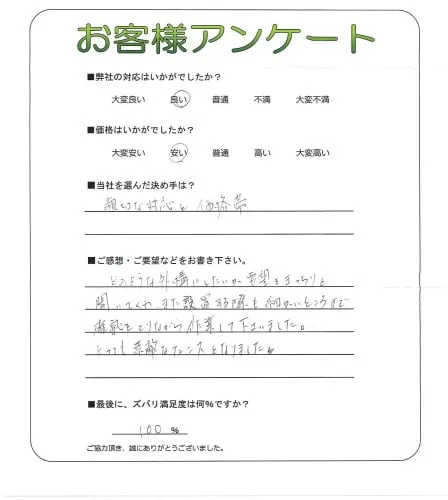 お客様アンケート
■弊社の対応はいかがでしたか？
大変良い 良い 普通 不満 大変不満
■価格はいかがでしたか？
大変安い 安い 普通 高い 大変高い
■当社を選んだ決め手は？
親切な対応と 価格帯
■ご感想・ご要望などをお書き下さい。
どのような外構にしたいか 要望をきっちりと
聞いてくれ また設置する際も 細かいところまで
確認をとりながら 作業して下さいました。
とっても 素敵なフェンスとなりました。
■最後に、ズバリ満足度は何%ですか？
100 %
ご協力頂き、誠にありがとうございました。